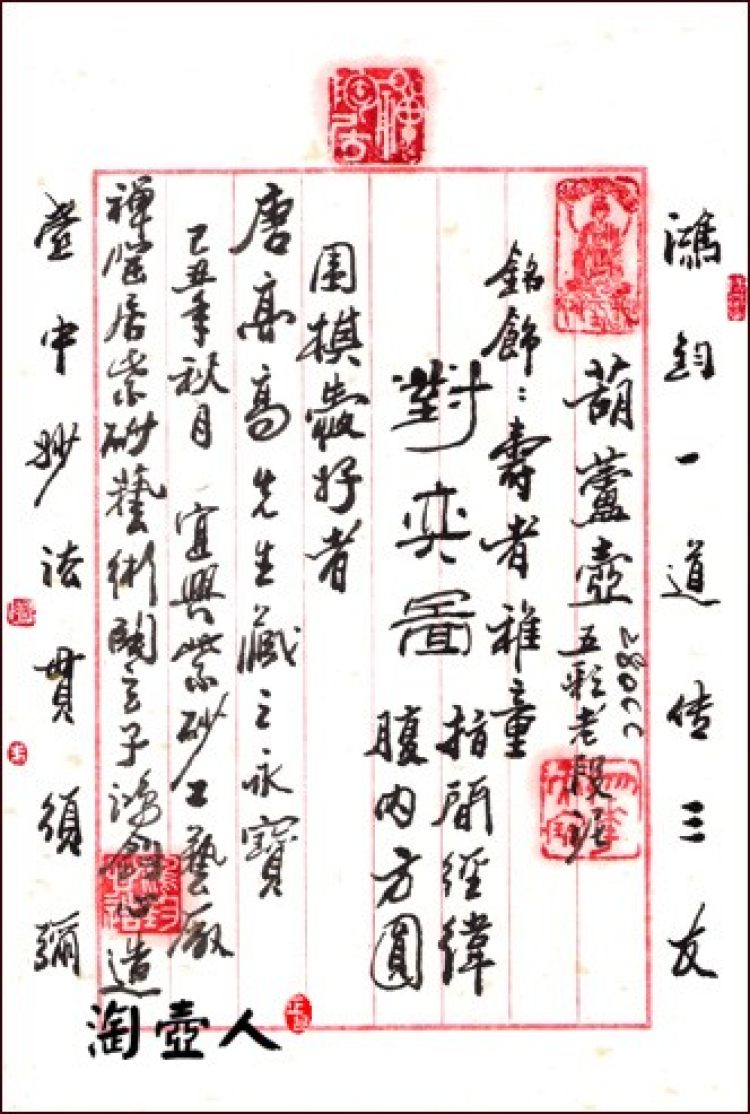 鴻鈞一道传三友
葫蘆壺 五彩老段泥
280cc
銘飾：壽者稚童
對奕圖
指間經緯
腹内方圓
围棋爱好者
唐高高先生藏之永寶
己丑年秋月 宜興紫砂工藝廠
禪陶居紫砂藝術關主子鴻鈞心造
壺中妙法貫須彌
淘壺人